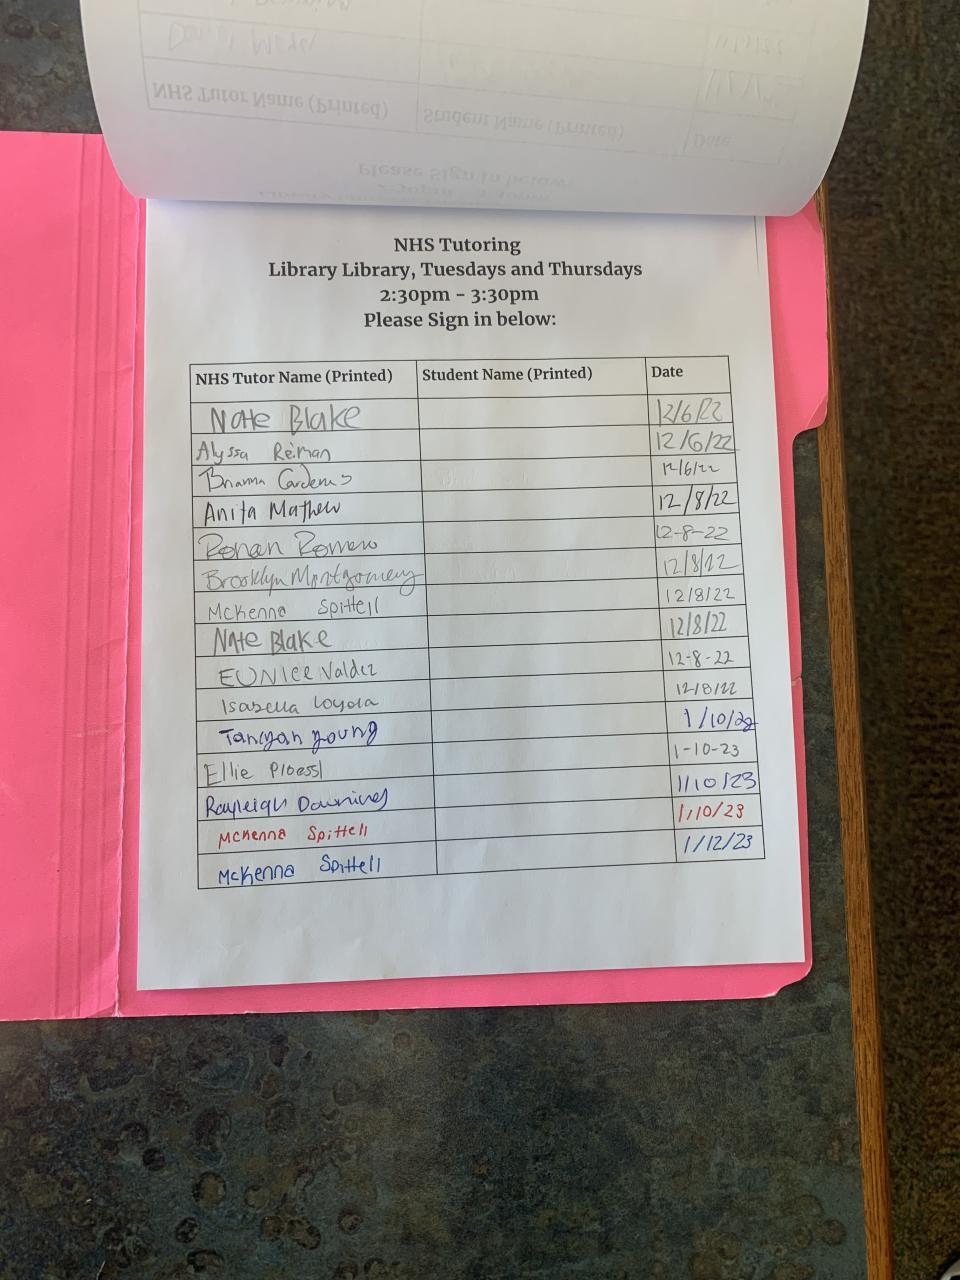 NHS Tutor Name (Printed) Student Name (Printed) Date
Please Sign in below:
NHS Tutoring
Library Library, Tuesdays and Thursdays
2:30pm - 3:30pm
Please Sign in below:
NHS Tutor Name (Printed) Student Name (Printed) Date
Nate Blake 12/6/22
Alyssa Reiman 12/6/22
Brianna Cardenas 12/6/22
Anita Mathew 12/8/22
Ronan Romero 12-8-22
Brooklyn Montgomery 12/8/22
McKenna Spittell 12/8/22
Nate Blake 12/8/22
EUNICE Valdez 12-8-22
Isabella Loyola 12/8/22
young 1/10/23
Ellie Ploessl 1-10-23
Rayleigh Downing 1/10/23
McKenna Spittell 1/10/23
McKenna Spittell 1/12/23